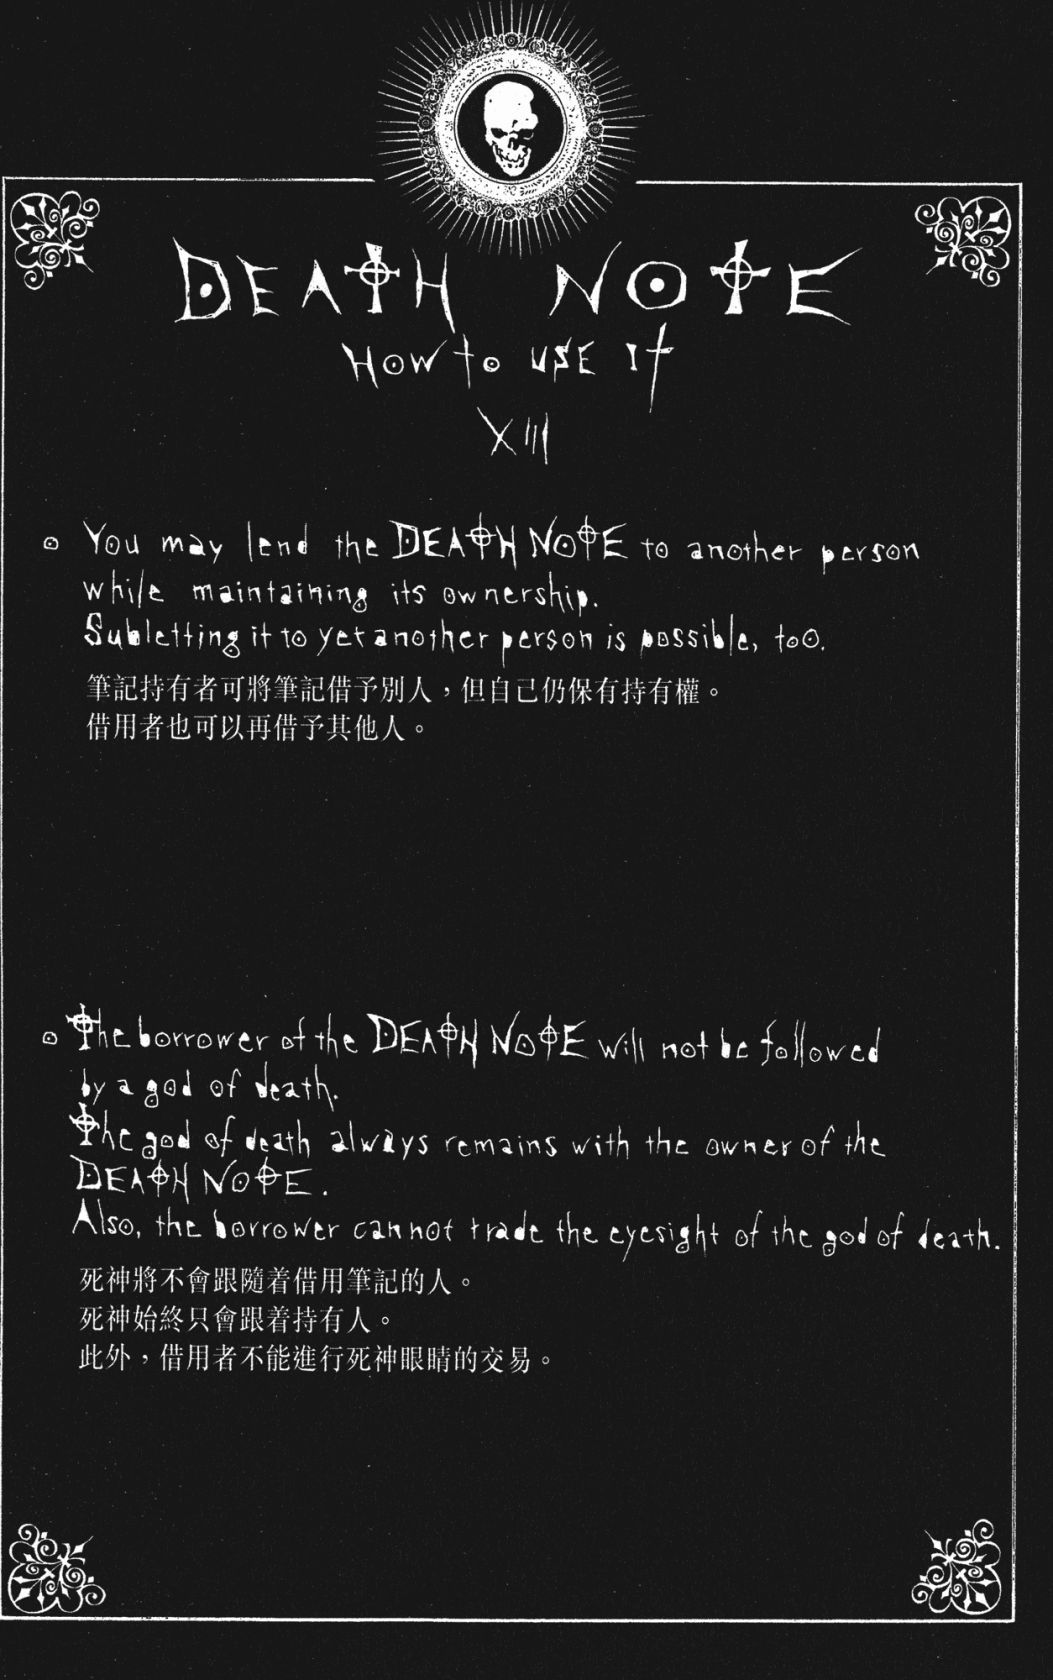 DEATH NOTE
How to use it
XIII
You may lend the DEATH NOTE to another person
while maintaining its ownership.
Subletting it to yet another person is possible, too.
筆記持有者可將筆記借予別人，但自己仍保有持有權。
借用者也可以再借予其他人。
The borrower of the DEATH NOTE will not be followed
by a god of death.
The god of death always remains with the owner of the
DEATH NOTE.
Also, the borrower cannot trade the eyesight of the god of death.
死神將不會跟隨着借用筆記的人。
死神始終只會跟着持有人。
此外，借用者不能進行死神眼睛的交易。